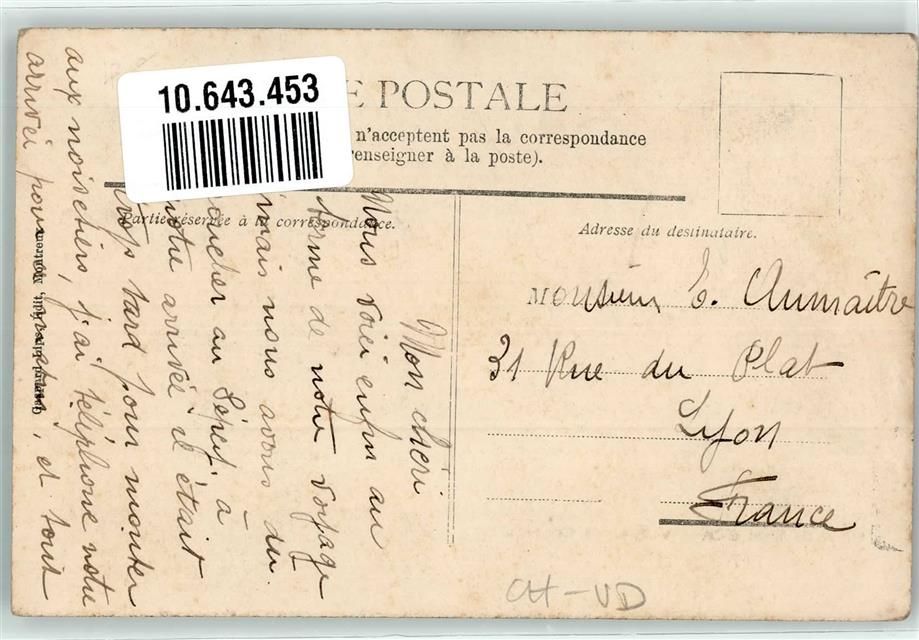 10.643.453
E POSTALE
n'acceptent pas la correspondance
renseigner à la poste).
Partie réservée à la correspondance.
Adresse du destinataire.
Mon chéri
Nous voici enfin au
terme de notre voyage
mais nous avons du
coucher au Sépey à
notre arrivée il était
trop tard pour monter
aux noisetiers, j'ai téléphoné notre
arrivée pour et tout
Monsieur E. Aumaître
31 Rue du Plat
Lyon
France
CH-VD